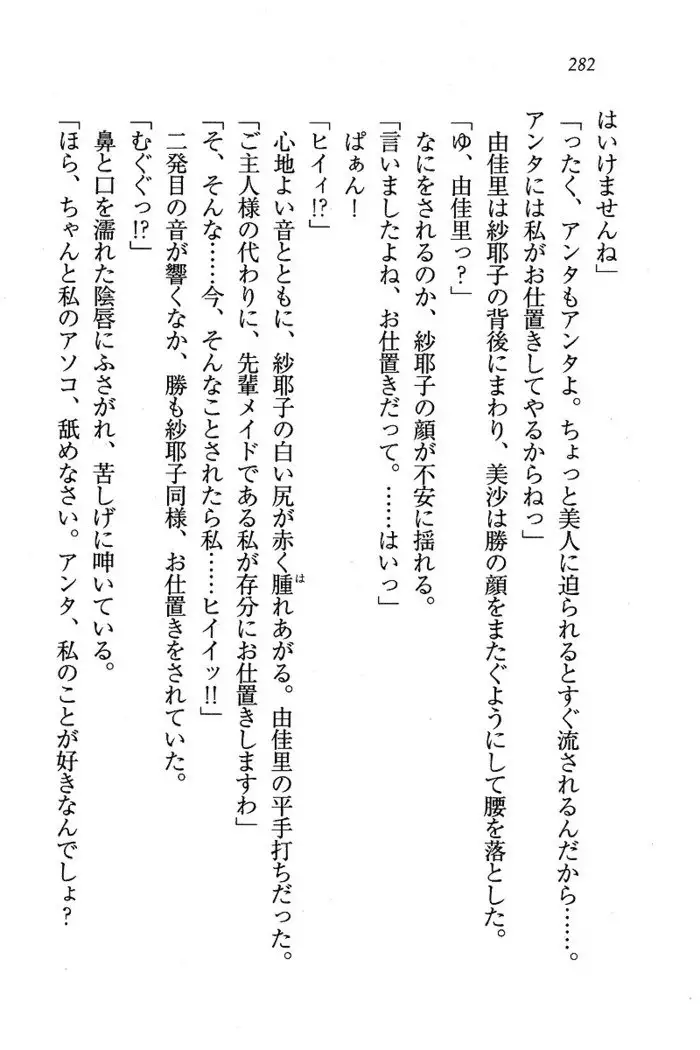 282
はいけませんね」
「ったく、アンタもアンタよ。ちょっと美人に迫られるとすぐ流されるんだから……。
アンタには私がお仕置きしてやるからねっ」
由佳里は紗耶子の背後にまわり、美沙は勝の顔をまたぐようにして腰を落とした。
「ゆ、由佳里っ？」
なにをされるのか、紗耶子の顔が不安に揺れる。
「言いましたよね、お仕置きだって。……はいっ」
ぱぁん！
「ヒイィ!?」
心地よい音とともに、紗耶子の白い尻が赤く腫れあがる。由佳里の平手打ちだった。
「ご主人様の代わりに、先輩メイドである私が存分にお仕置きしますわ」
「そ、そんな……今、そんなことされたら私……ヒイイッ!!」
二発目の音が響くなか、勝も紗耶子同様、お仕置きをされていた。
「むぐぐっ!?」
鼻と口を濡れた陰唇にふさがれ、苦しげに呻いている。
「ほら、ちゃんと私のアソコ、舐めなさい。アンタ、私のことが好きなんでしょ？